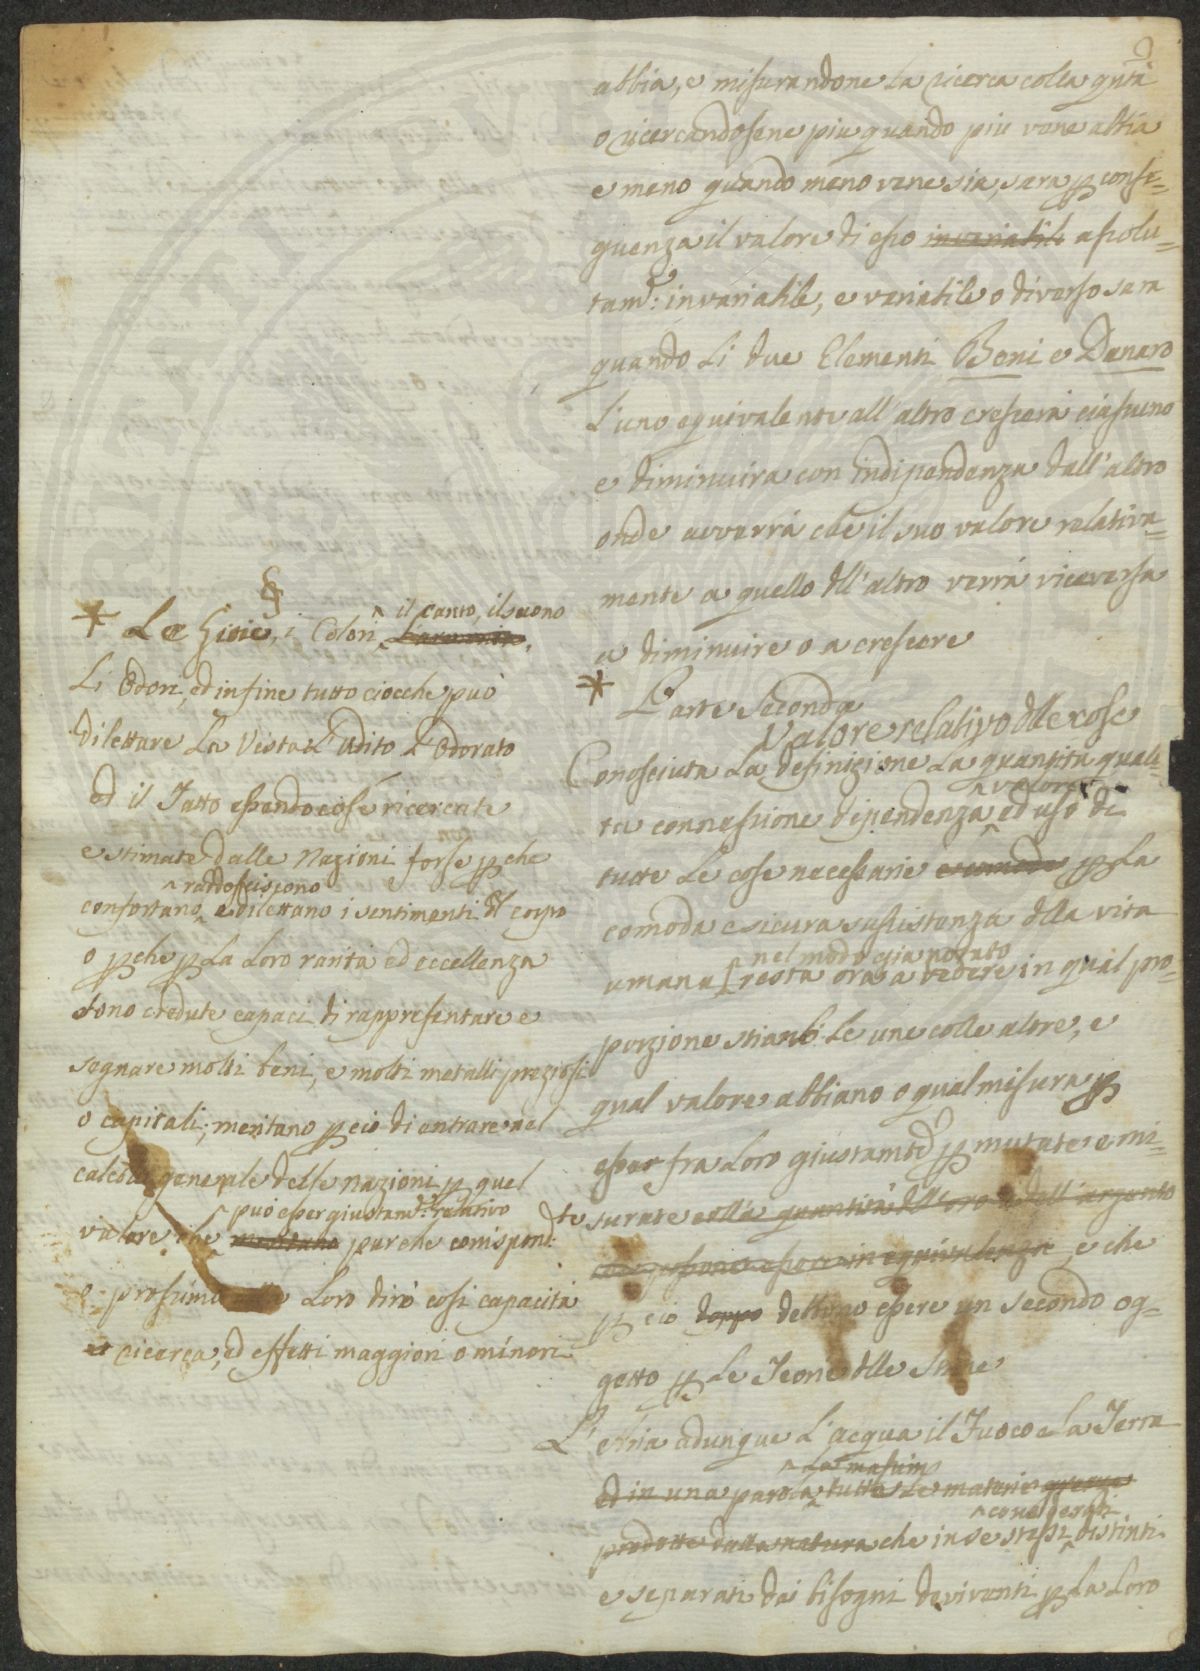 abbia, e misurandone la ricerca colla qntà
o ricercandosene piu quando piu vene abbia
e meno quando meno vene sia, sara p conse=
guenza il valore di esso invariabile assolu=
tame: invariabile, e variabile o diverso sara
quando li due Elementi Beni e Danaro
l'uno equivalente all'altro crescerà ciascuno
e diminuira con indipendenza dall'altro
onde avverrà che il suo valore relativa=
mente a quello dll'altro verrà viceversa
a diminuire o a crescere
* Parte Seconda
Valore relativo dlle cose
Conosciuta la definizione la quantità quali=
tà connessione dipendenza ^ valore ed uso di
tutte le cose necessarie e comode p la
comoda e sicura sussistenza dlla vita
umana [nel modo gia notato resta ora a vedere in qual pro=
porzione stianò le une colle altre, e
qual valore abbiano o qual misura p
esser fra loro giustamte p mutate e mi=
surate colla quantità dll'oro e dell'argento
equivalenza, e che
p ciò doppo debbono essere un secondo og=
getto p le Teorie dlle Stime
L'Aria adunque l'acqua il Fuoco e la Terra
ed in una parola ^ tutte le materie
prodotte dalla natura che in se stessi ^ distinti
e separati dai bisogni deviventi p la loro
§
* Le Gioie, i Colori, ^ il canto, il suono L'armonia,
Li Odori, ed infine tutto ciocche può
dilettare la Vista L'Udito L'Odorato
ed il Tatto essendo cose ricercate
e stimate dalle Nazioni forse p che
confortano, ^ raddolciscono e dilettano i sentimenti dl corpo
o p che p la loro rarità ed eccellenza
sono credute capaci di rappresentare e
segnare molti beni, e molti metalli preziosi
o capitali; meritano p ciò di entrare nel
calcolo generale delle nazioni p quel
valore che ^ può esser giustame: relativo meritano purche corrispont:
e prossimo loro dirò così capacità
ricerca, ed effetti maggiori o minori